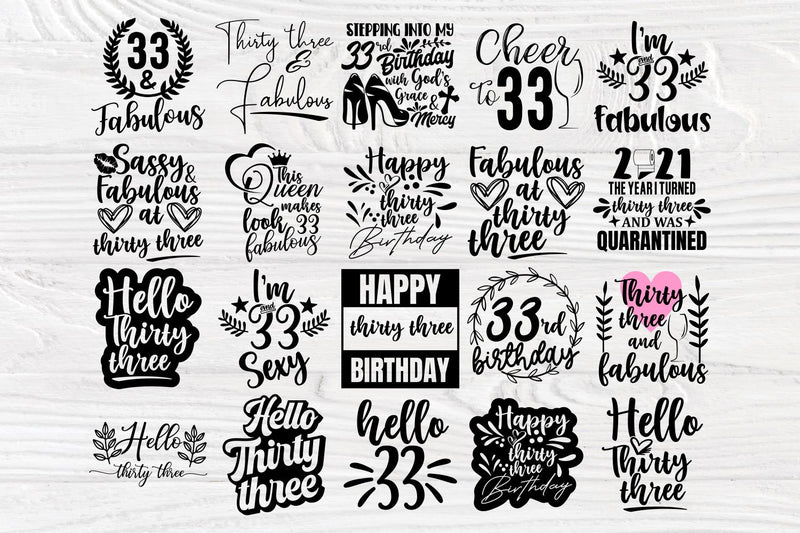 33
&
Fabulous
Thirty three
&
Fabulous
STEPPING INTO MY
33rd Birthday
with God's
Grace &
Mercy
Cheer
To 33
I'm
and
33
fabulous
Sassy
&
Fabulous
at
thirty three
This
Queen
makes
look 33
fabulous
Happy
thirty
three
Birthday
Fabulous
at
thirty
three
2021
THE YEAR I TURNED
thirty three
AND WAS
QUARANTINED
Hello
Thirty
three
I'm
and
33
Sexy
HAPPY
thirty three
BIRTHDAY
33rd
birthday
Thirty
three
and
fabulous
Hello
thirty three
Hello
Thirty
three
hello
33
Happy
thirty
three
Birthday
Hello
Thirty
three